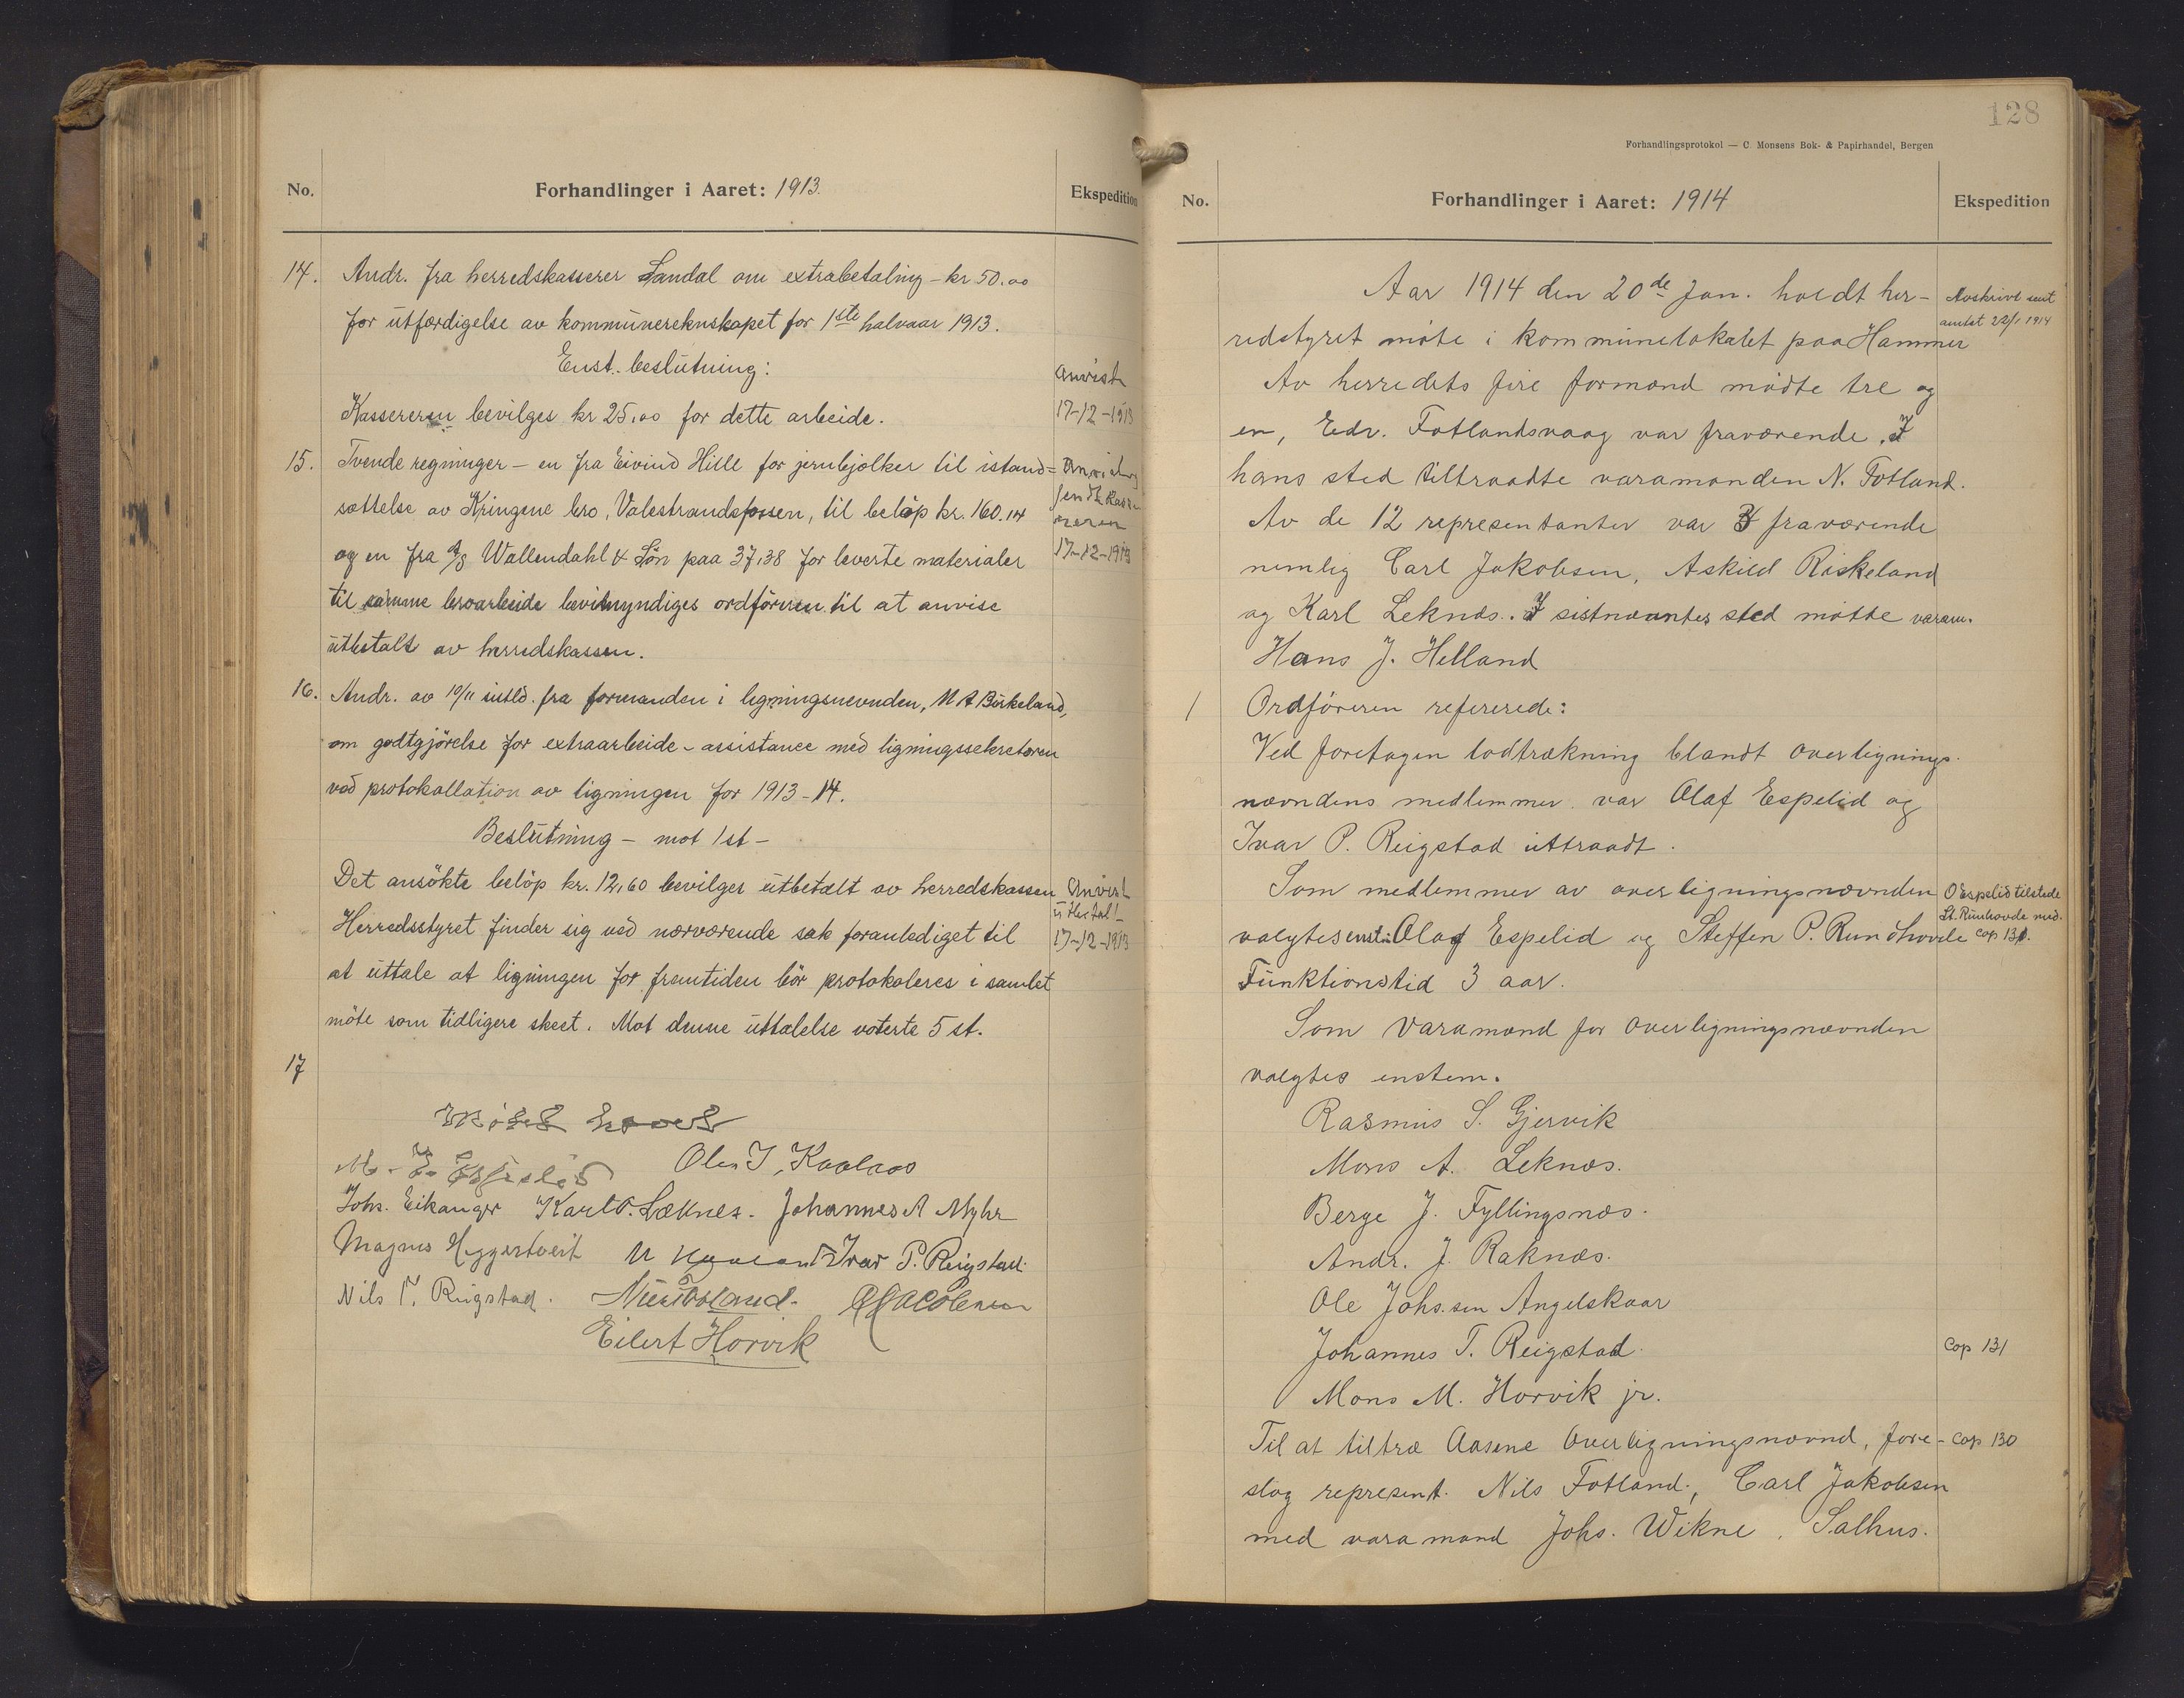 No.
Forhandlinger i Aaret: 1913.
Ekspedition
14. Andr. fra herredskasserer Sandal om extrabetaling - kr 50.00
for utfærdigelse av kommunereknskapet for 1ste halvaar 1913.
Enst. beslutning:
Kassereren bevilges kr 25,00 for dette arbeide.
Anvist
17-12-1913
15. Tvende regninger - en fra Eivind Hille for jernbjelker til istand=
sættelse av Kringene bro, Valestrandsfossen, til beløp kr. 160.14
og en fra A/S Wallendahl & Søn paa 37,38 for leverte materialer
til samme broarbeide bevimyndiges ordføreren til at anvise
utbetalt av herredskassen.
Anvist og
sendt Kasse
reren
17-12-1913
16. Andr. av 10/11 sistld. fra formanden i ligningsnevnden, M A Birkeland,
om godtgjörelse for extraarbeide - assistance med ligningssekretæren
ved protokollation av ligningen for 1913-14.
Beslutning - mot 1 st -
Det ansökte belöp kr. 12,60 bevilges utbetalt av herredskassen
Herredsstyret finder sig ved nærværende sak foranlediget til
at uttale at ligningen for fremtiden bör protokoleres i samlet
möte som tidligere skeet. Mot denne uttalelse voterte 5 st.
Anvist
utbetalt
17-12-1913
17
Mötet hævet
M. J. Espelid Ole J. Kaalaas
Johs. Eikanger Karl O. Læknes. Johannes A Myhr
Magnus Heggertveit Ivar P. Reigstad.
Nils T. Reigstad. Nils Fotland. C Jacobsen
Eilert Horvik
128
Forhandlingsprotokol — C. Monsens Bok- & Papirhandel, Bergen
No.
Forhandlinger i Aaret: 1914
Ekspedition
Aar 1914 den 20de Jan. holdt her-
redstyret møte i kommunelokalet paa Hammer
Avskrivt sent
amtet 22/1 1914
Av herredets fire formænd mødte tre og
en, Edr. Fotlandsvaag var fraværende. I
hans sted tiltraadte varamanden N. Fotland.
Av de 12 representanter var 3 fraværende
nemlig Carl Jakobsen, Askild Röskeland
og Karl Leknæs. I sistnævntes sted møtte varam.
Hans J. Helland
1 Ordføreren refererede:
Ved foretagen lodtrækning blandt overlignings-
nævndens medlemmer var Olaf Espelid og
Ivar P. Reigstad uttraadt.
Som medlemmer av overligningsnævnden
valgtes enst. Olaf Espelid og Steffen P. Rundhovde
Funktionstid 3 aar.
O Espelid tilstede
St. Rundhovde med.
cop 131.
Som varamænd for overligningsnævnden
valgtes enstem.
Rasmus S. Gjervik
Mons A. Leknæs.
Berge J. Fyllingsnæs.
Andr. J. Raknæs.
Ole Johs.sen Angelskaar
Johannes T. Reigstad. Cop 131
Mons M. Horvik jr.
Til at tiltræ Aasene Overligningsnævnd, fore- Cop 130
slog represent. Nils Fotland, Carl Jakobsen
med varamand Johs. Wikne, Salhus.